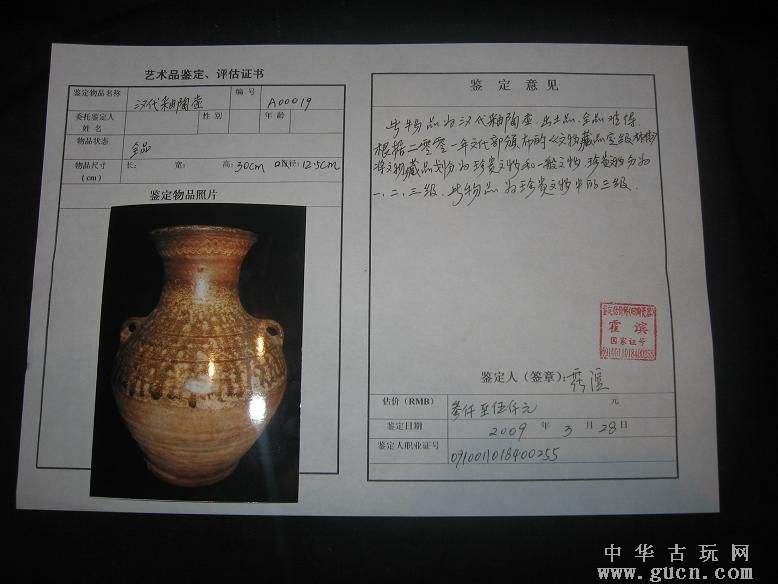 艺术品鉴定、评估证书
鉴定物品名称 汉代釉陶壶 编号 A00019
委托鉴定人姓名 性别 年龄
物品状态 全品
物品尺寸(cm) 长: 宽: 高:30cm 口径:12.5cm
鉴定物品照片
鉴定意见
此物品为汉代釉陶壶.出土品.全品难得.
根据二零零一年文化部颁布的《文物藏品定级标准》
将文物藏品划分为珍贵文物和一般文物.珍贵文物分为
一、二、三级.此物品为珍贵文物中的三级.
霍滨
国家证号
0910011018400255
鉴定人(签章):霍滨
估价(RMB) 叁仟至伍仟元 元
鉴定日期 2009 年 3 月 28 日
鉴定人职业证号 0910011018400255
中华古玩网
www.gucn.com